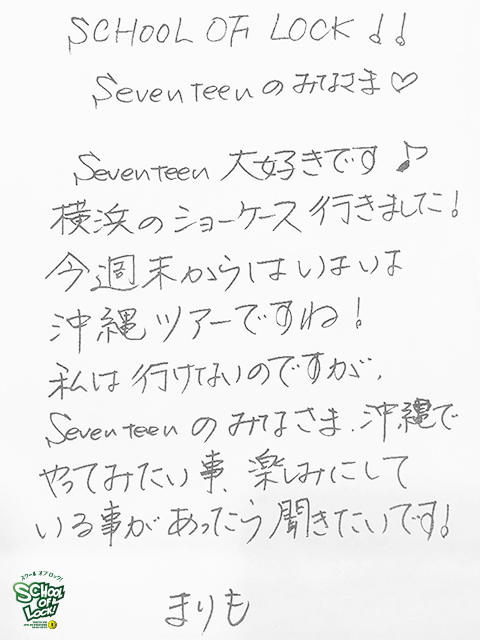 SCHOOL OF LOCK!!
Seventeenのみなさま♡
Seventeen 大好きです♪
横浜のショーケース行きました!
今週末からはいよいよ
沖縄ツアーですね!
私は行けないのですが、
Seventeenのみなさま、沖縄で
やってみたい事、楽しみにして
いる事があったら聞きたいです!
まりも
スクール オブ ロック!
SCHOOL
OF
LOCK!